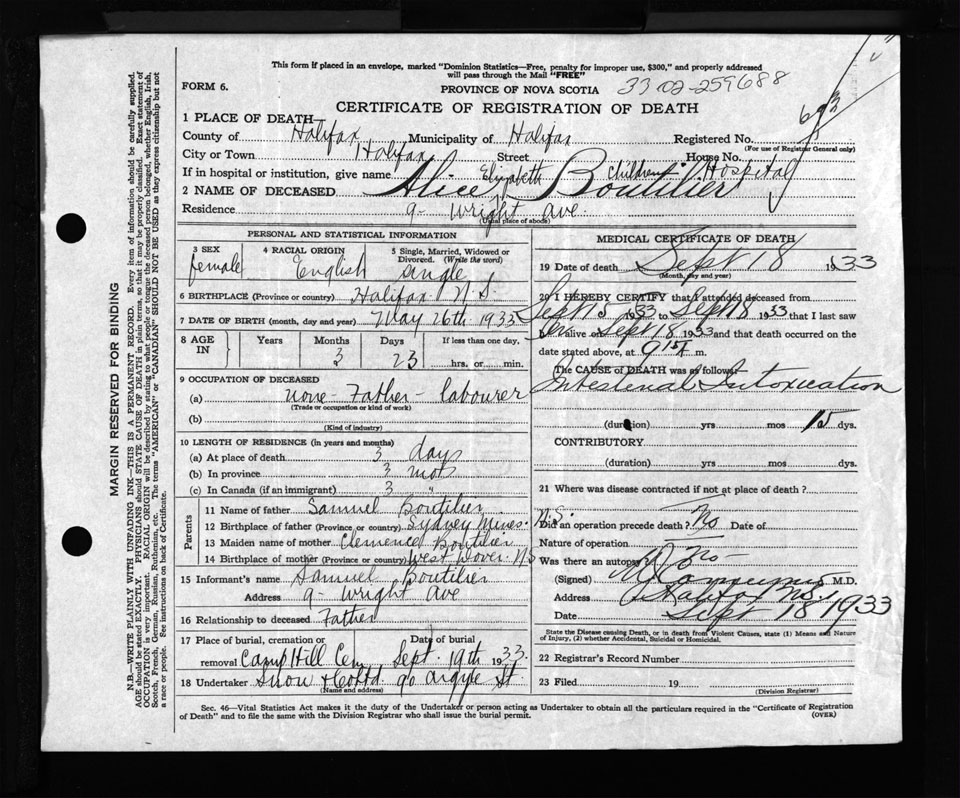 This form if placed in an envelope, marked "Dominion Statistics—Free, penalty for improper use, $300," and properly addressed
will pass through the Mail "FREE"
FORM 6.
PROVINCE OF NOVA SCOTIA 33-02-259688
CERTIFICATE OF REGISTRATION OF DEATH
1 PLACE OF DEATH
County of Halifax Municipality of Halifax Registered No. 693
(For use of Registrar General only)
City or Town Halifax Street House No.
If in hospital or institution, give name Children's Hospital
2 NAME OF DECEASED Alice Elizabeth Boutilier
Residence 9- Wright Ave.
(Usual place of abode)
MARGIN RESERVED FOR BINDING
N.B.—WRITE PLAINLY WITH UNFADING INK—THIS IS A PERMANENT RECORD. Every item of information should be carefully supplied.
AGE should be stated EXACTLY. PHYSICIANS should STATE CAUSE OF DEATH in plain terms, so that it may be properly classified. Exact statement of
OCCUPATION is very important. RACIAL ORIGIN will be described by stating to what people or tongue the deceased person belonged, whether English, Irish,
Scotch, French, German, Russian, Ruthenian, etc. The terms "AMERICAN" or "CANADIAN" SHOULD NOT BE USED as they express citizenship but not
a race or people. See instructions on back of Certificate.
PERSONAL AND STATISTICAL INFORMATION
3 SEX 4 RACIAL ORIGIN 5 Single, Married, Widowed or
Divorced. (Write the word)
female English single
6 BIRTHPLACE (Province or country) Halifax N.S.
7 DATE OF BIRTH (month, day and year) May 26th 1933
8 AGE IN Years Months Days If less than one day,
3 23 hrs. or min.
9 OCCUPATION OF DECEASED
(a) none - Father - labourer
(Trade or occupation or kind of work)
(b)
(Kind of industry)
10 LENGTH OF RESIDENCE (in years and months)
(a) At place of death 3 days
(b) In province 3 mos
(c) In Canada (if an immigrant) 3 "
Parents
11 Name of father Samuel Boutilier
12 Birthplace of father (Province or country) Sydney Mines N.S.
13 Maiden name of mother Clemence Boutilier
14 Birthplace of mother (Province or country) West Dover N.S
15 Informant's name Samuel Boutilier
Address 9- Wright Ave
16 Relationship to deceased Father
17 Place of burial, cremation or Date of burial
removal Camp Hill Cem Sept. 19th 1933.
18 Undertaker Snow & Co Ltd 90 Argyle St.
(Name and address)
MEDICAL CERTIFICATE OF DEATH
19 Date of death Sept 18 1933
(Month, day and year)
20 I HEREBY CERTIFY that I attended deceased from
Sept 15 1933 to Sept 18 1933 that I last saw
her alive on Sept 18 1933 and that death occurred on
date stated above, at m.
The CAUSE OF DEATH was as follows:
Intestinal Intoxication
(duration) yrs mos 15 dys.
CONTRIBUTORY
(duration) yrs mos dys.
21 Where was disease contracted if not at place of death?
Did an operation precede death? No Date of
Nature of operation
Was there an autopsy? No
(Signed) M.D.
Address Halifax N.S.
Date Sept 18 1933
State the Disease causing Death, or in death from Violent Causes, state (1) Means and Nature
of Injury, (2) whether Accidental, Suicidal or Homicidal.
22 Registrar's Record Number
23 Filed 19
(Division Registrar)
Sec. 46—Vital Statistics Act makes it the duty of the Undertaker or person acting as Undertaker to obtain all the particulars required in the "Certificate of Registration
of Death" and to file the same with the Division Registrar who shall issue the burial permit. (OVER)